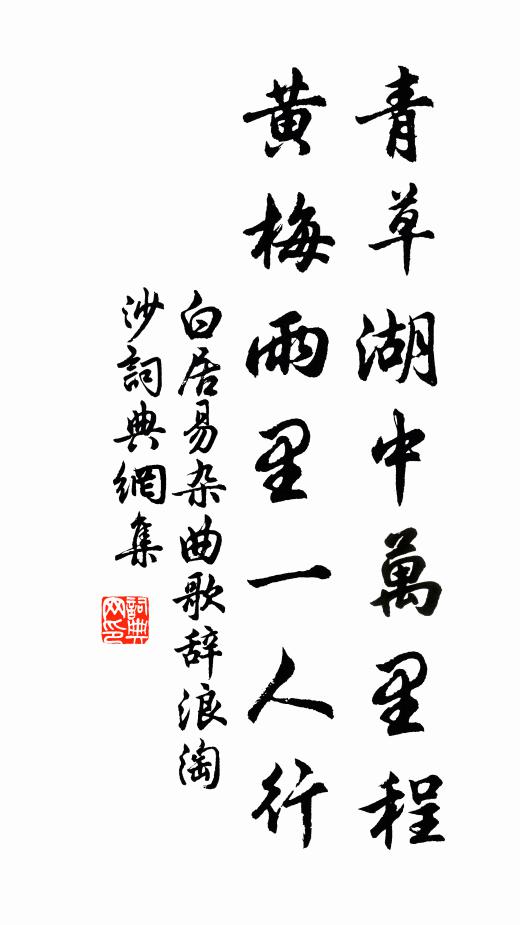 青草湖中萬里程
黄梅雨里一人行
白居易杂曲歌辞浪淘
沙詞典網集
詞典网印